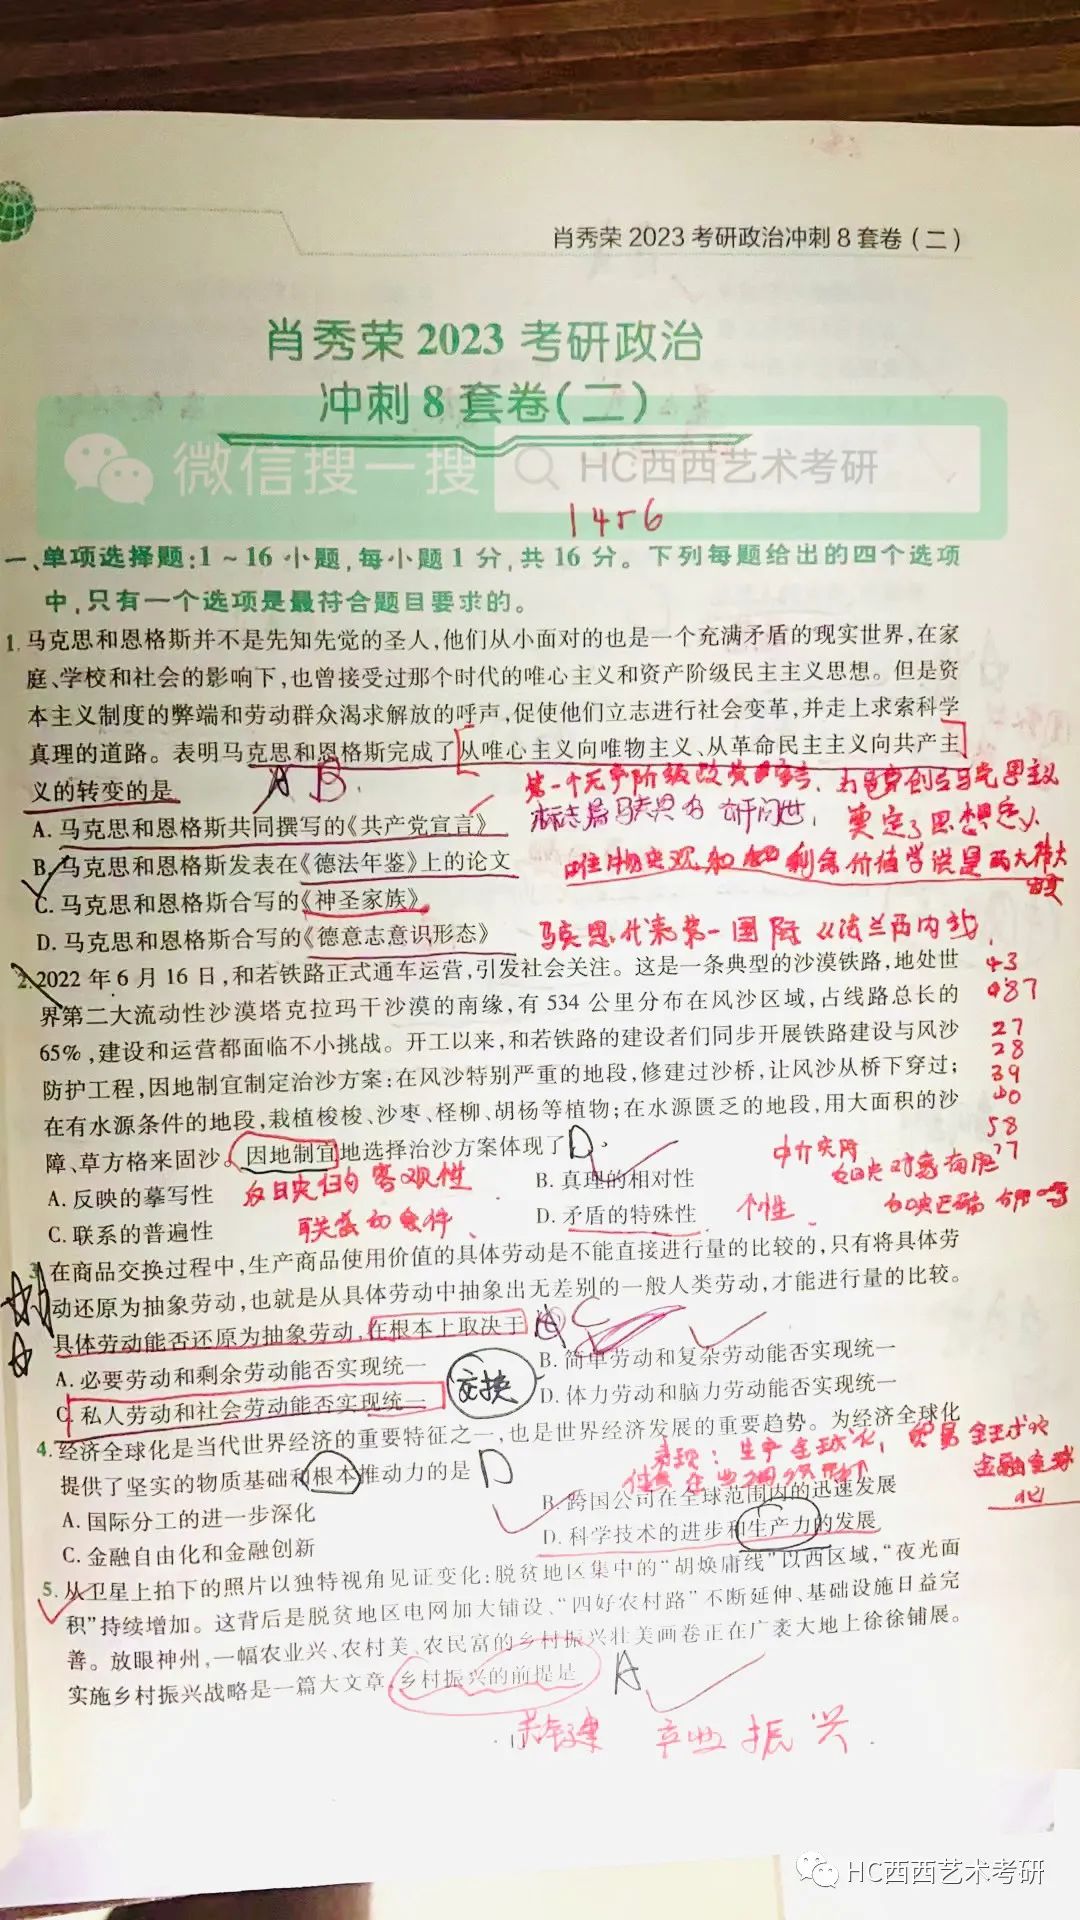 肖秀荣 2023 考研政治冲刺 8 套卷（二）
肖秀荣 2023 考研政治
冲刺 8 套卷（二）
微信搜一搜
HC西西艺术考研
1456
一、单项选择题：1～16 小题，每小题 1 分，共 16 分。下列每题给出的四个选项
中，只有一个选项是最符合题目要求的。
1. 马克思和恩格斯并不是先知先觉的圣人，他们从小面对的也是一个充满矛盾的现实世界，在家
庭、学校和社会的影响下，也曾接受过那个时代的唯心主义和资产阶级民主主义思想。但是资
本主义制度的弊端和劳动群众渴求解放的呼声，促使他们立志进行社会变革，并走上求索科学
真理的道路。表明马克思和恩格斯完成了从唯心主义向唯物主义、从革命民主主义向共产主
义的转变的是
A B
A. 马克思和恩格斯共同撰写的《共产党宣言》
B. 马克思和恩格斯发表在《德法年鉴》上的论文
C. 马克思和恩格斯合写的《神圣家族》
D. 马克思和恩格斯合写的《德意志意识形态》
2. 2022 年 6 月 16 日，和若铁路正式通车运营，引发社会关注。这是一条典型的沙漠铁路，地处世
界第二大流动性沙漠塔克拉玛干沙漠的南缘，有 534 公里分布在风沙区域，占线路总长的
65%，建设和运营都面临不小挑战。开工以来，和若铁路的建设者们同步开展铁路建设与风沙
防护工程，因地制宜制定治沙方案：在风沙特别严重的地段，修建过沙桥，让风沙从桥下穿过；
在有水源条件的地段，栽植梭梭、沙枣、柽柳、胡杨等植物；在水源匮乏的地段，用大面积的沙
障、草方格来固沙。因地制宜地选择治沙方案体现了 D
27
28
39
58
A. 反映的摹写性
B. 真理的相对性
C. 联系的普遍性
D. 矛盾的特殊性
个性
3. 在商品交换过程中，生产商品使用价值的具体劳动是不能直接进行量的比较的，只有将具体劳
动还原为抽象劳动，也就是从具体劳动中抽象出无差别的一般人类劳动，才能进行量的比较。
具体劳动能否还原为抽象劳动，在根本上取决于
A. 必要劳动和剩余劳动能否实现统一
B. 简单劳动和复杂劳动能否实现统一
C. 私人劳动和社会劳动能否实现统一
交换
D. 体力劳动和脑力劳动能否实现统一
4. 经济全球化是当代世界经济的重要特征之一，也是世界经济发展的重要趋势。为经济全球化
提供了坚实的物质基础和根本推动力的是 D
A. 国际分工的进一步深化
B. 跨国公司在全球范围内的迅速发展
C. 金融自由化和金融创新
D. 科学技术的进步和生产力的发展
5. 从卫星上拍下的照片以独特视角见证变化：脱贫地区集中的“胡焕庸线”以西区域，“夜光面
积”持续增加。这背后是脱贫地区电网加大铺设、“四好农村路”不断延伸、基础设施日益完
善。放眼神州，一幅农业兴、农村美、农民富的乡村振兴壮美画卷正在广袤大地上徐徐铺展。
实施乡村振兴战略是一篇大文章，乡村振兴的前提是 A
产业振兴
HC西西艺术考研